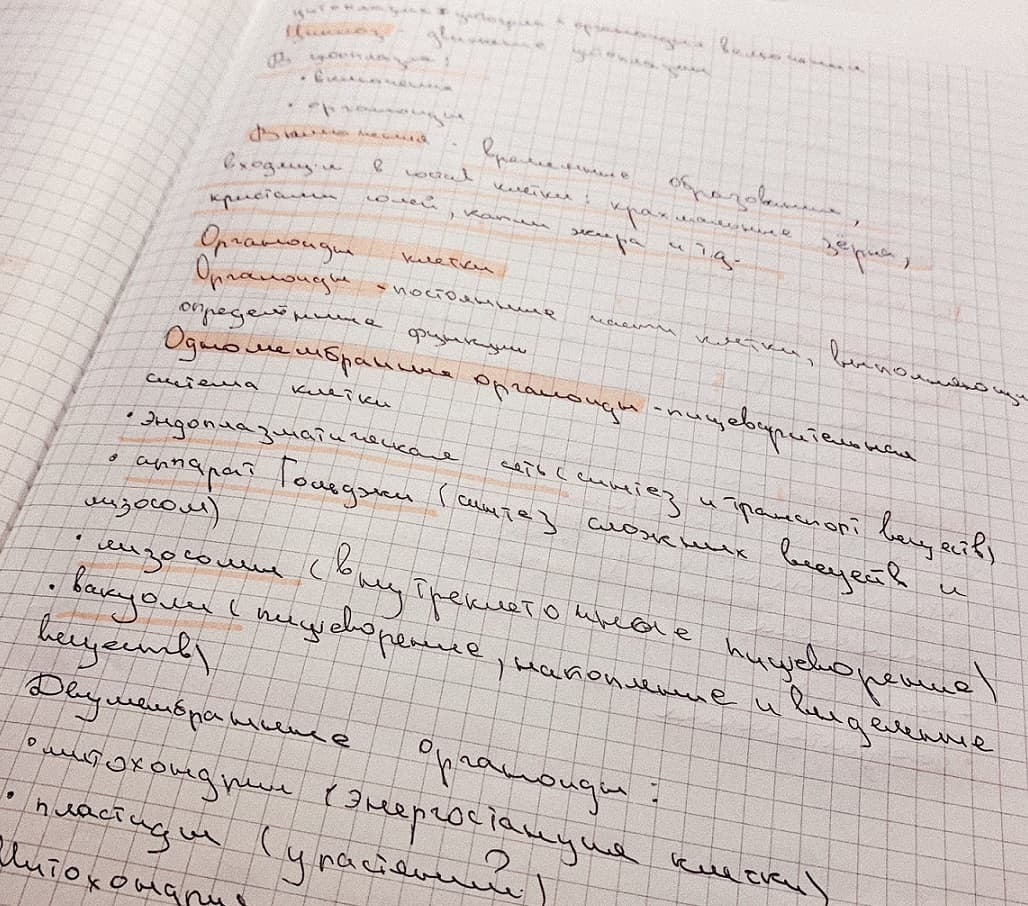 цитоплазма = + органоиды включения
Циклоз - движение цитоплазмы
В цитоплазме:
• включения
• органоиды
Включения - временные образования,
входящие в состав клетки: крахмальные зёрна,
кристаллы солей, капли жира и т.д.
Органоиды клетки
Органоиды - постоянные части клетки, выполняющие
определённые функции
Одномембранные органоиды - пищеварительная
система клетки
• эндоплазматическая сеть (синтез и транспорт веществ)
• аппарат Гольджи (синтез сложных веществ и
лизосом)
• лизосомы (внутриклеточное пищеворение)
• вакуоли (пищеворение, накопление и выделение
веществ)
Двумембранные органоиды:
• митохондрии (энергостанция клетки)
• пластиды (у растений)
Митохондрия